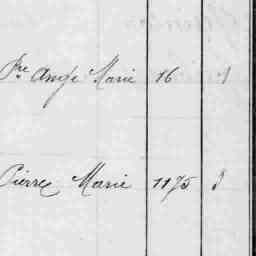 Fre Ange Marie 16 1
Pierre Marie 1175 J